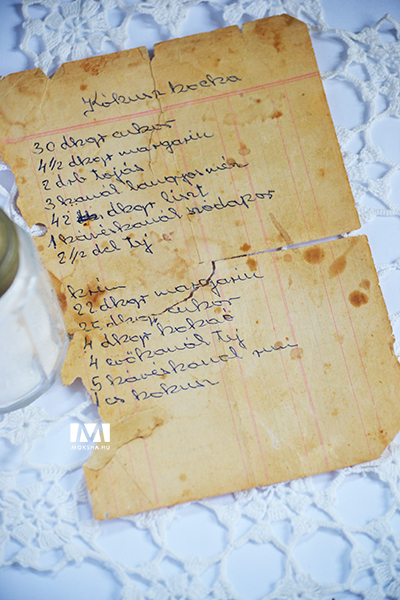 Kókusz kocka
30 dkgr cukor
4 1/2 dkgr margarin
2 drb tojás
3 kanál langyos méz
42 dkgr liszt
1 kávéskanál szódapor
2 1/2 dcl tej
krém
22 dkgr margarin
25 dkgr cukor
4 dkgr kakaó
4 evőkanál tej
5 kávéskanál rum
1 cs kokusz
M
MOKSHA.HU